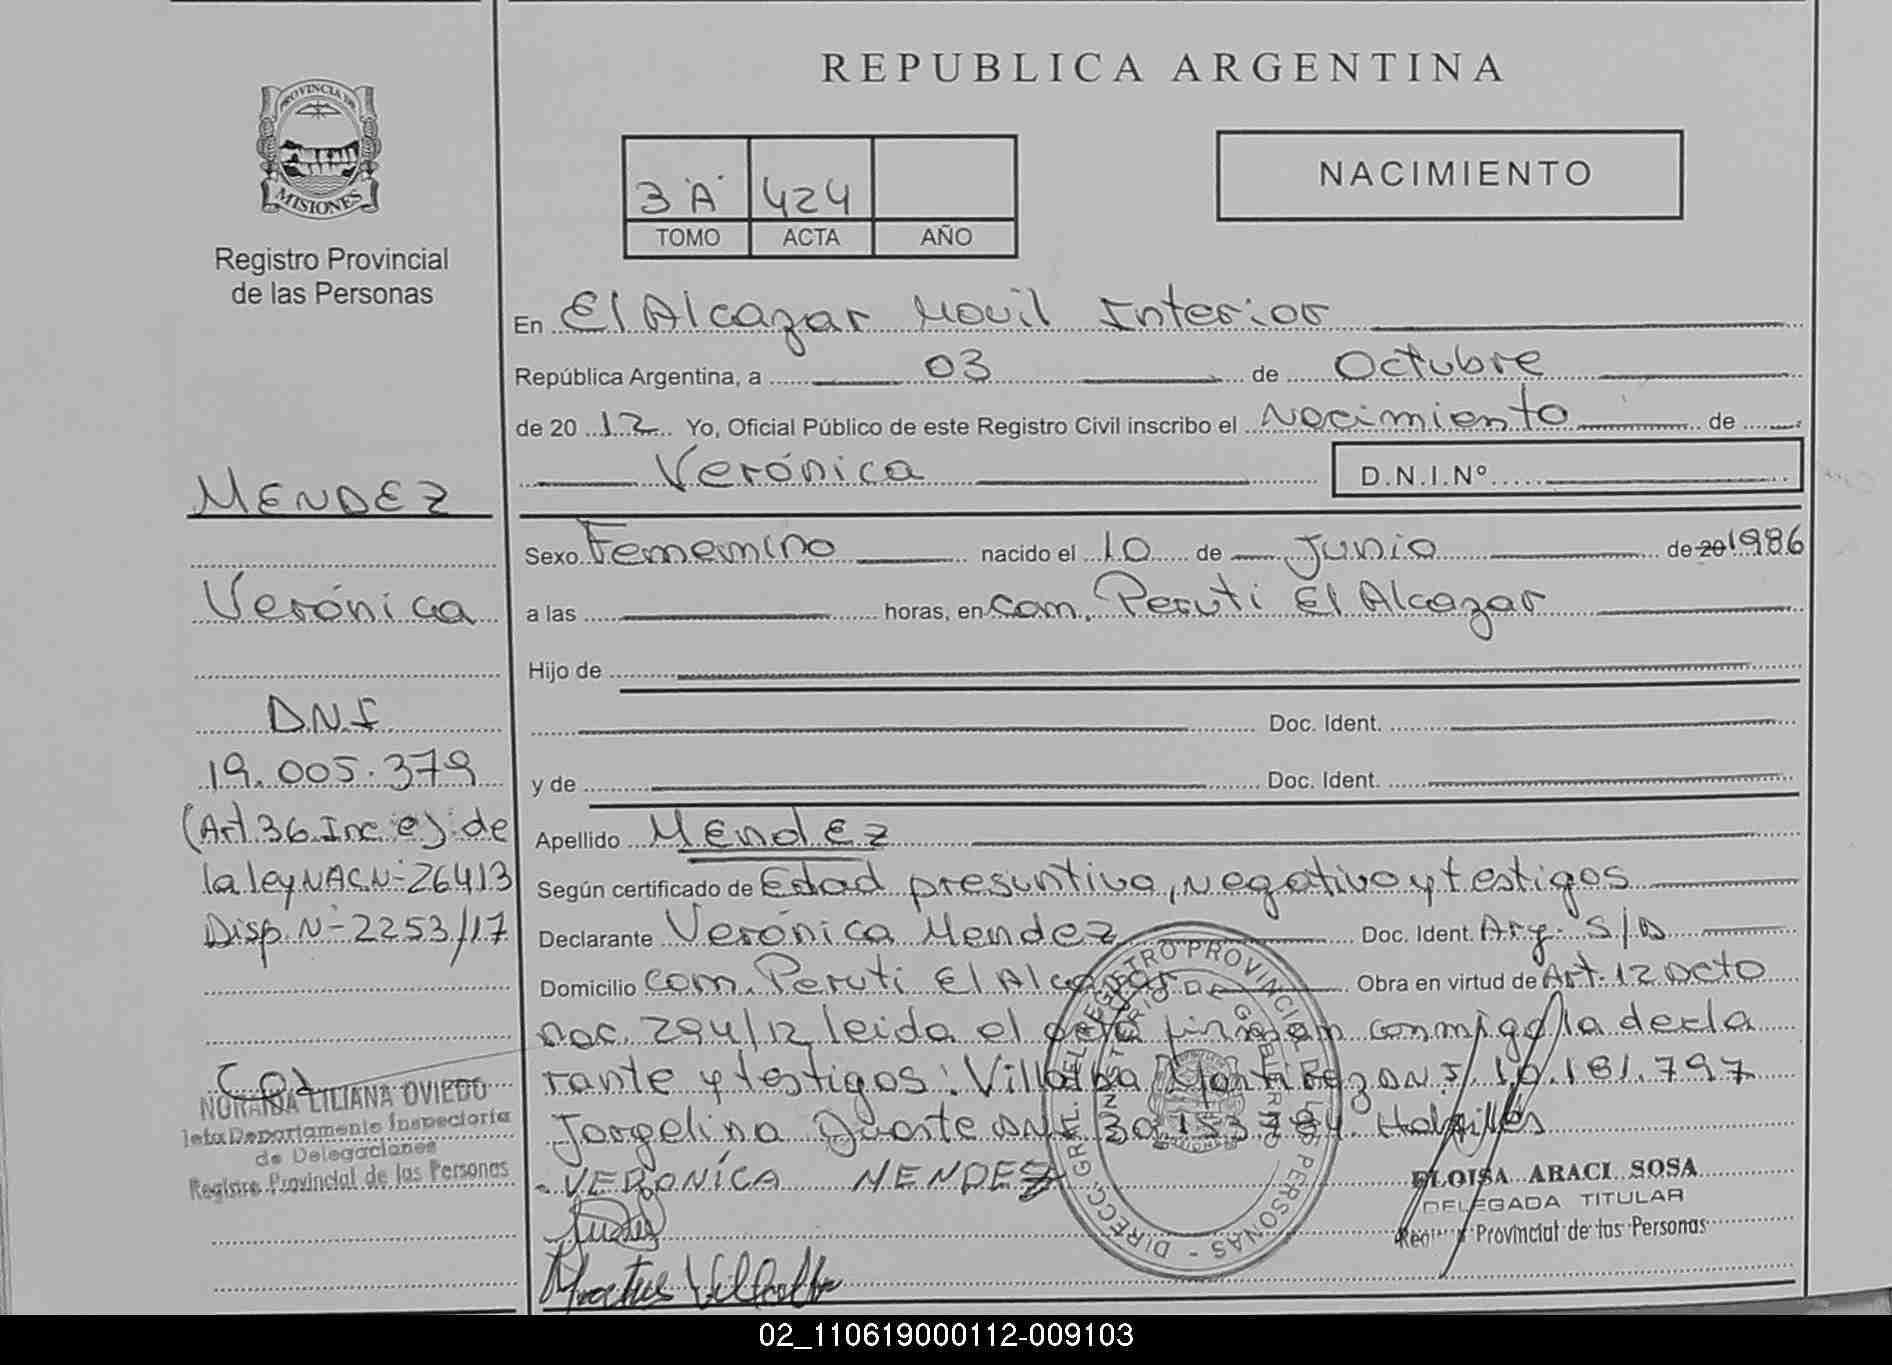 REPUBLICA ARGENTINA
PROVINCIA DE
MISIONES
Registro Provincial
de las Personas
3 "A" 424
TOMO ACTA AÑO
NACIMIENTO
En El Alcazar Movil Interior
República Argentina, a 03 de Octubre
de 20 12 Yo, Oficial Público de este Registro Civil inscribo el Nacimiento de
Verónica D.N.I.Nº
Sexo Femenino nacido el 10 de Junio de 20 1986
a las horas, en Com. Peruti El Alcazar
Hijo de
Doc. Ident.
y de Doc. Ident.
Apellido Mendez
Según certificado de Edad presuntiva, negativo y testigos
Declarante Verónica Mendez Doc. Ident. Arg. S/D
Domicilio Com. Peruti El Alcazar Obra en virtud de Art. 12 Dcto
Nac. 294/12 leida el acta firman conmigo la decla
rante y testigos: Villalba DNI 10.181.797
Jorgelina Duarte DNI 30.153.784.
VERONICA MENDEZ
ELOISA ARACI SOSA
DELEGADA TITULAR
Registro Provincial de las Personas
MENDEZ
Verónica
D.N.I
19.005.379
(Art.36.Inc.e) de
la ley NAC.Nº 26413
Disp.Nº 2253/17
NORAIDA LILIANA OVIEDO
Jefa Departamento Inspectoria
de Delegaciones
Registro Provincial de las Personas
02_110619000112-009103